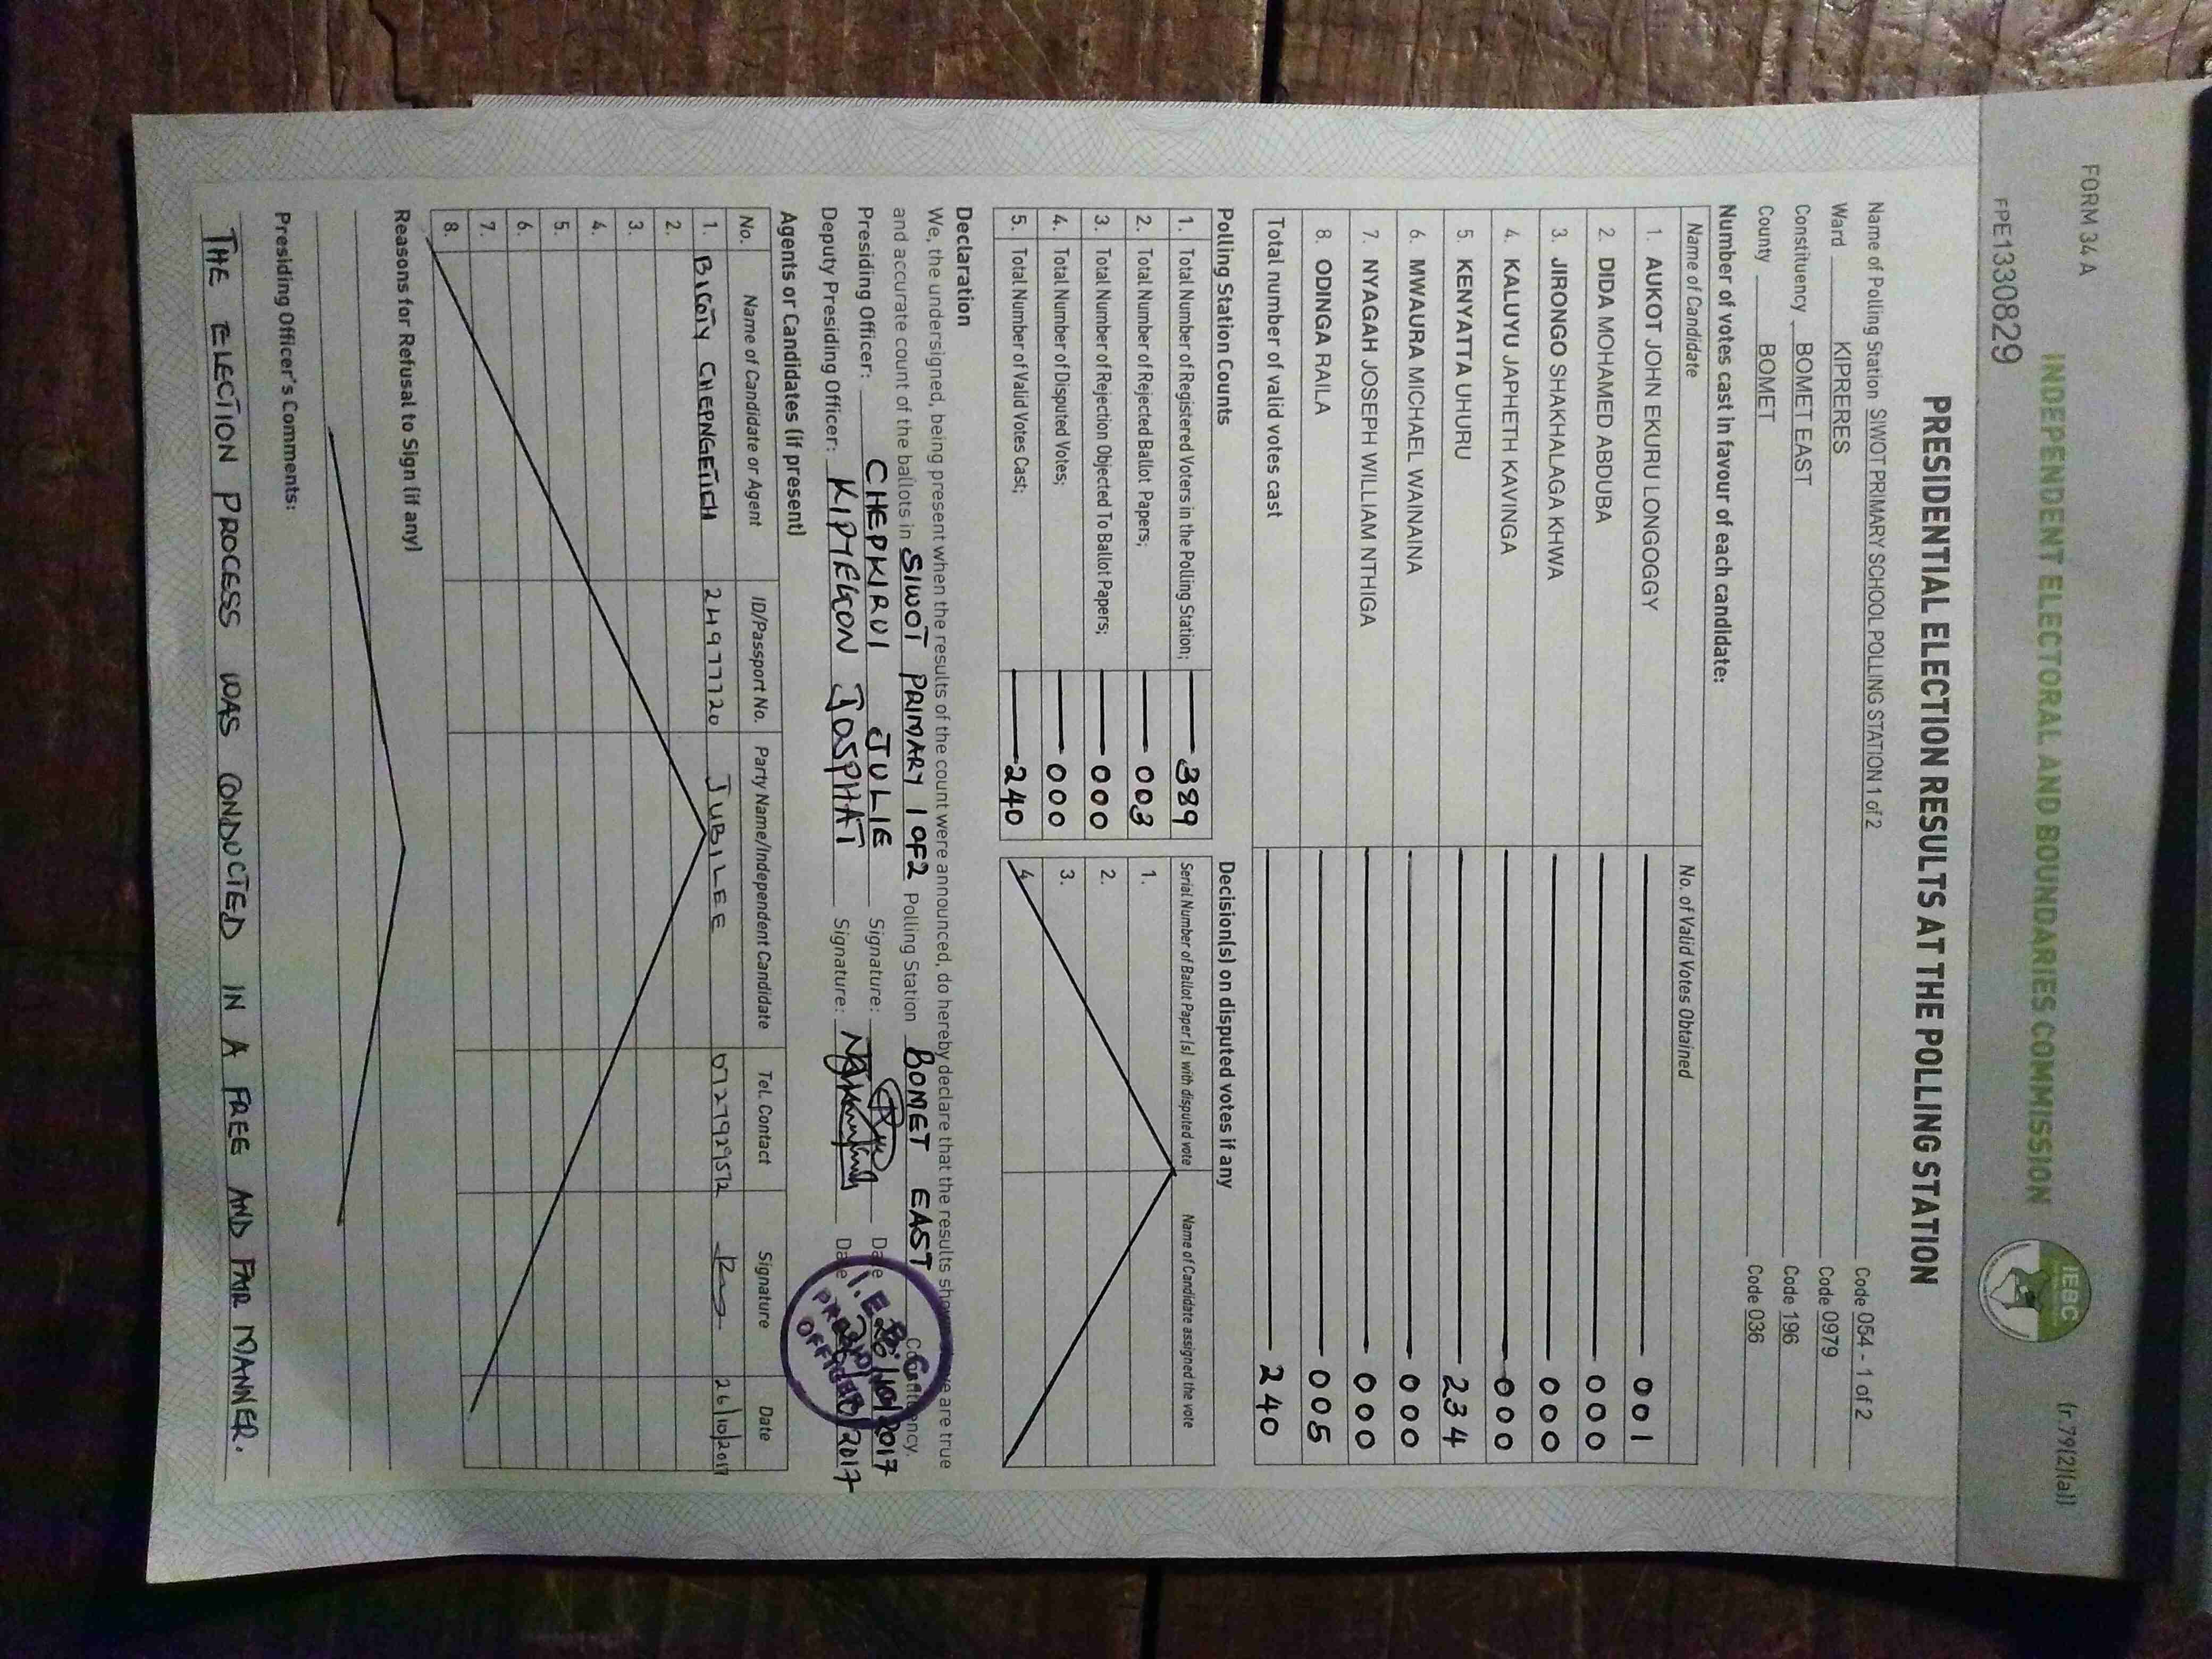 FORM 34 A
(r.79(2)(a))
INDEPENDENT ELECTORAL AND BOUNDARIES COMMISSION
IEBC
FPE1330829
PRESIDENTIAL ELECTION RESULTS AT THE POLLING STATION
Name of Polling Station SIWOT PRIMARY SCHOOL POLLING STATION 1 of 2 Code 054 - 1 of 2
Ward KIPRERES Code 0979
Constituency BOMET EAST Code 196
County BOMET Code 036
Number of votes cast in favour of each candidate:
Name of Candidate No. of Valid Votes Obtained
1. AUKOT JOHN EKURU LONGOGGY 001
2. DIDA MOHAMED ABDUBA 000
3. JIRONGO SHAKHALAGA KHWA 000
4. KALUYU JAPHETH KAVINGA 000
5. KENYATTA UHURU 234
6. MWAURA MICHAEL WAINAINA 000
7. NYAGAH JOSEPH WILLIAM NTHIGA 000
8. ODINGA RAILA 005
Total number of valid votes cast 240
Polling Station Counts
1. Total Number of Registered Voters in the Polling Station; 389
2. Total Number of Rejected Ballot Papers; 003
3. Total Number of Rejection Objected To Ballot Papers; 000
4. Total Number of Disputed Votes; 000
5. Total Number of Valid Votes Cast; 240
Decision(s) on disputed votes if any
Serial Number of Ballot Paper(s) with disputed vote Name of Candidate assigned the vote
1.
2.
3.
4.
Declaration
We, the undersigned, being present when the results of the count were announced, do hereby declare that the results show are true
and accurate count of the ballots in SIWOT PRIMARY 1 OF 2 Polling Station BOMET EAST Constituency.
Presiding Officer: CHEPKIRUI JULIE Signature: Date 26/10/2017
Deputy Presiding Officer: KIPYEGON JOSPHAT Signature: Date /2017
I.E.B.C
PRESIDING
OFFICER
Agents or Candidates (if present)
No. Name of Candidate or Agent ID/Passport No. Party Name/Independent Candidate Tel. Contact Signature Date
1. CHEPNGETICH 24977720 JUBILEE 0727929572 26/10/2017
2.
3.
4.
5.
6.
7.
8.
Reasons for Refusal to Sign (if any)
Presiding Officer's Comments:
THE ELECTION PROCESS WAS CONDUCTED IN A FREE AND FAIR MANNER.